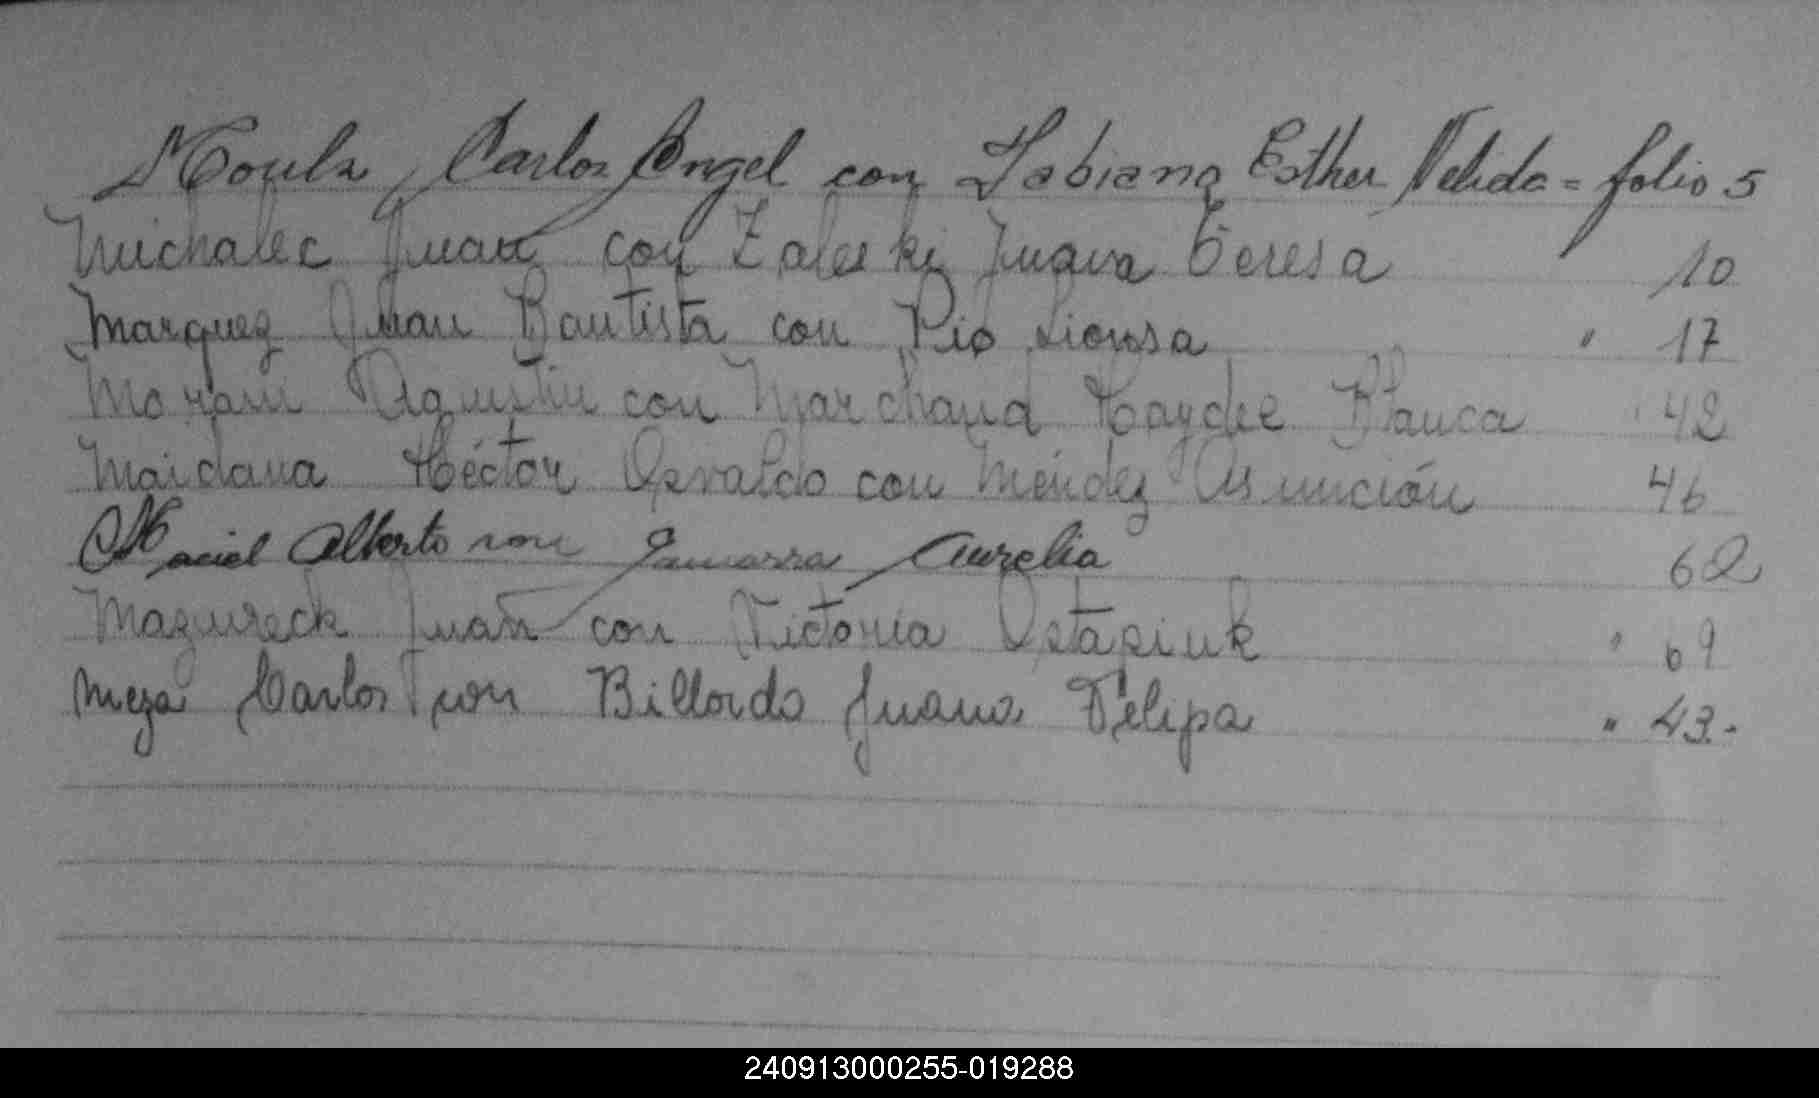 Carlos Angel con Fabiana Esther Nelida = folio 5
Michalec Juan con Zaleski Juana Teresa 10
Marquez Juan Bautista con Pio Lionsa " 17
Morani Agustin con Marchand Haydee Blanca " 42
Maidana Héctor Osvaldo con Méndez Asunción 46
Maciel Alberto con Gamarra Aurelia 62
Mazureck Juan con Victoria Ostapiuk " 69
Meza Carlos con Billordo Juana Felipa " 43.-
240913000255-019288